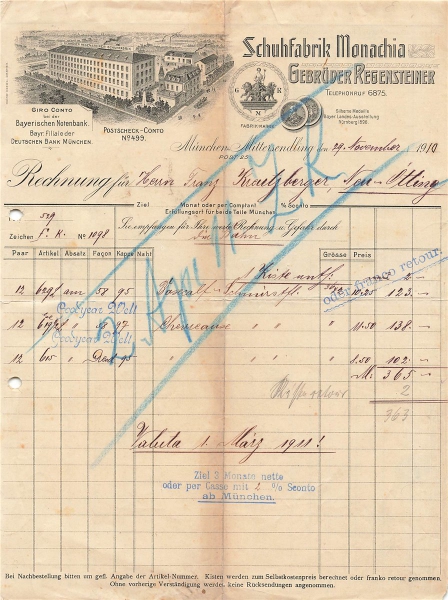 Schuhfabrik Monachia
Gebrüder Regensteiner
Telephonruf 6875.
G R
M
Fabrikmarke
Silberne Medaille
Bayer. Landes-Ausstellung
Nürnberg 1896.
Giro Conto
bei der
Bayerischen Notenbank.
Bayr. Filiale der
Deutschen Bank München.
Postscheck-Conto
No 499.
München-Mittersendling den 29. November 1910
Post 25
Rechnung für Herrn Franz Kraetzberger, Neu-Ötting
Ziel Monat oder per Comptant
Erfüllungsort für beide Teile München.
529
Zeichen F. K. No 1098 Sie empfangen für Ihre werte Rechnung u. Gefahr durch
die Bahn
Paar Artikel Absatz Façon Kappe Naht Grösse Preis
1 Kiste
oder franko retour.
12 629/2 am 58 95 Boxcalf Schnürstfl. 10.25 123.-
Goodyear Welt
12 58 97 Chevreaux " " 11.50 138.-
Goodyear Welt
12 615 " 95 " " " 8.50 102.-
M: 365.-
Kiste retour 2
363
Valuta 1. März 1911!
Ziel 3 Monate netto
oder per Casse mit 2 % Sconto
ab München.
Bei Nachbestellung bitten um gefl. Angabe der Artikel-Nummer. Kisten werden zum Selbstkostenpreis berechnet oder franko retour genommen.
Ohne vorherige Verständigung werden keine Rücksendungen angenommen.